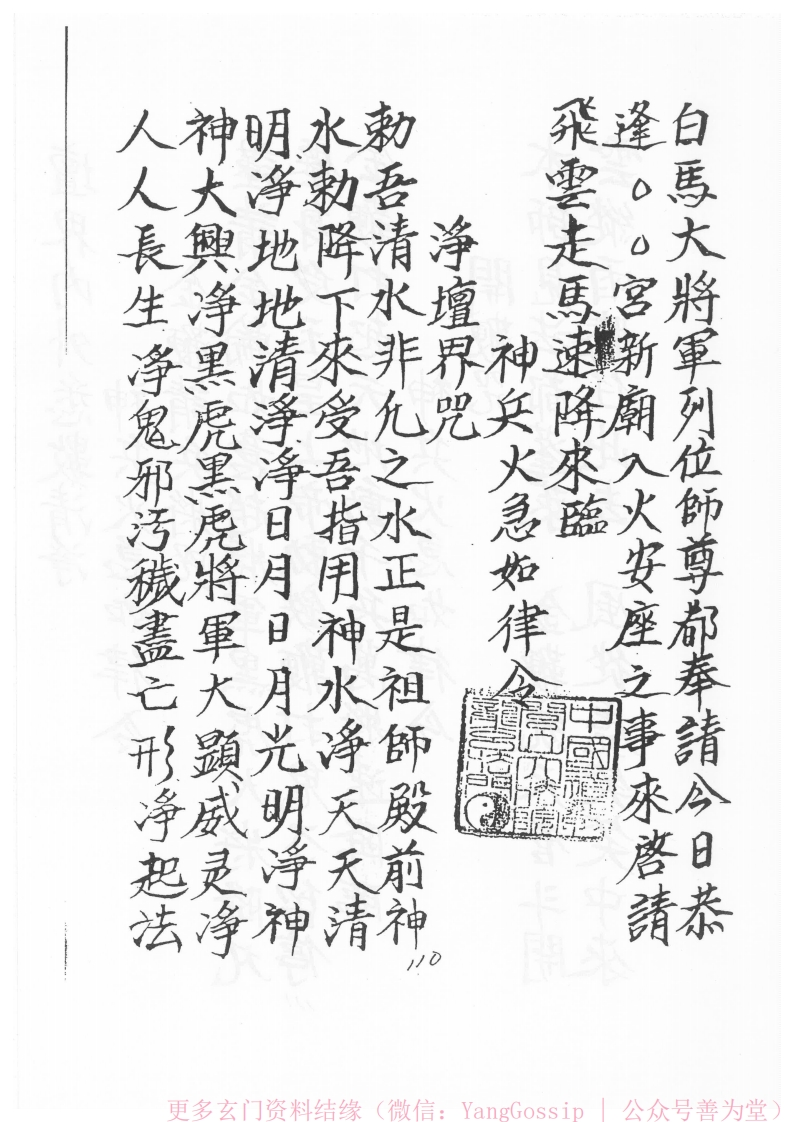 白馬大將軍列位師尊都奉請今日恭
逢〇〇宮新廟入火安座之事來啓請
飛雲走馬速降來臨
神兵火急如律令
淨壇界咒
勅吾清水非凡之水正是祖師殿前神
水勅降下來受吾指用神水淨天天清
明淨地地清淨淨日月日月光明淨神
神大興淨黑虎黑虎將軍大顕威灵淨
人人長生淨鬼邪汚穢盡亡形淨起法
110
更多玄门资料结缘（微信：YangGossip | 公众号善为堂）